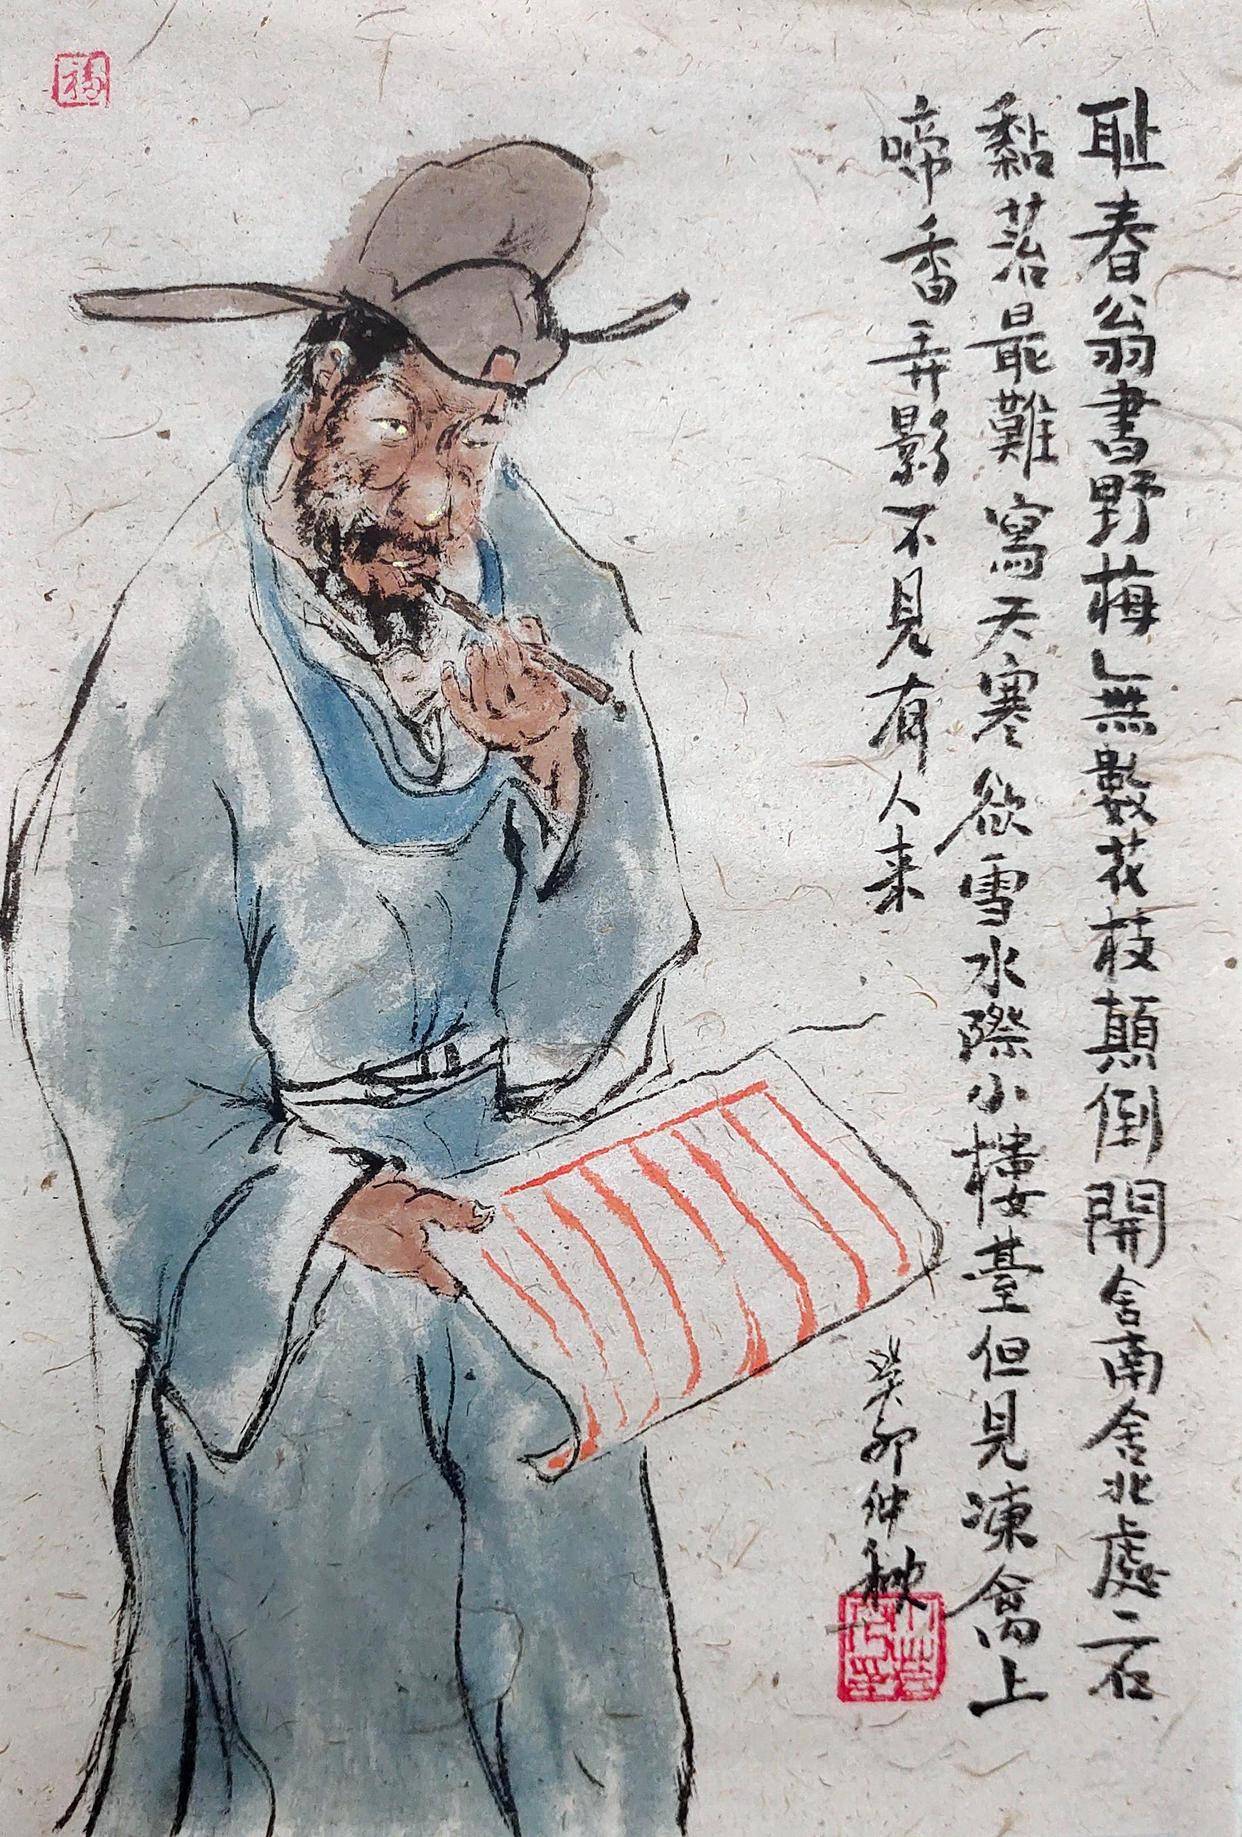 耻春翁書野梅無數花枝顛倒開舍南舍北處々石
黏菭最難寫天寒欲雪水際小樓臺但見凍禽上
啼香弄影不見有人来
癸卯仲秋
福